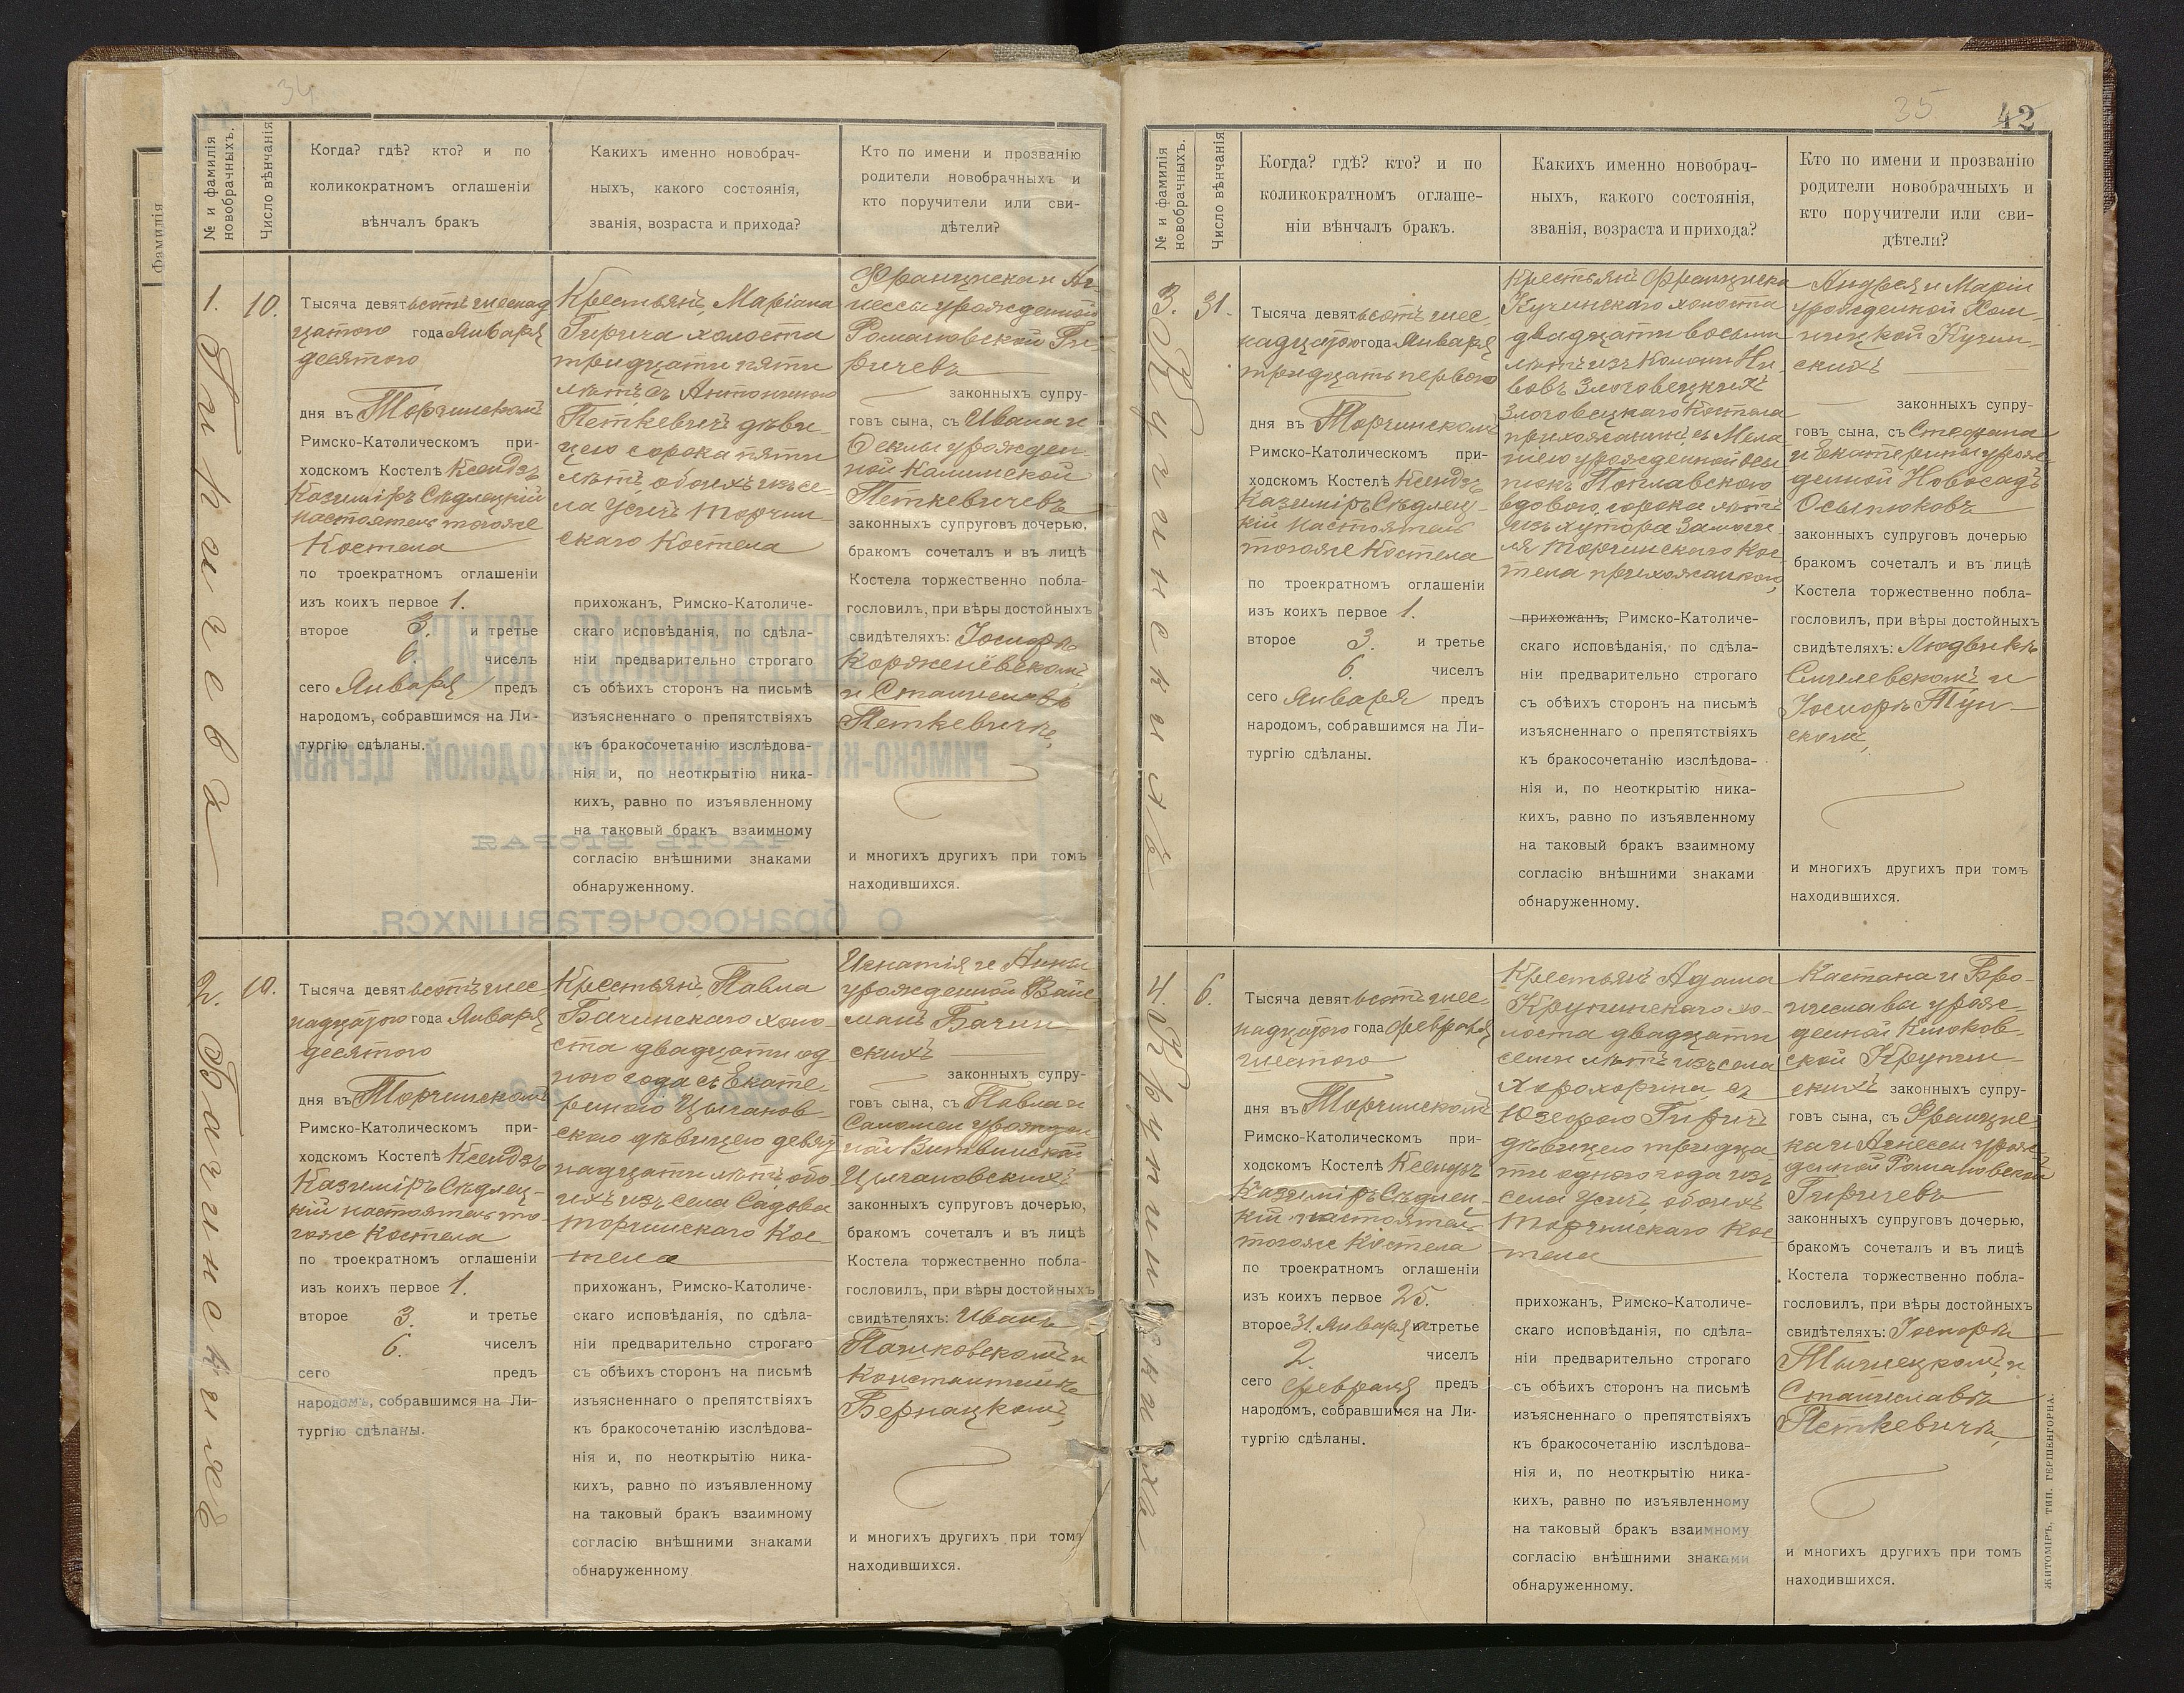 34
№ и фамилія новобрачныхъ.
Число вѣнчанія
Когда? гдѣ? кто? и по
коликократномъ оглашеніи
вѣнчалъ бракъ
Какихъ именно новобрач-
ныхъ, какого состоянія,
званія, возраста и прихода?
Кто по имени и прозванію
родители новобрачныхъ и
кто поручители или сви-
дѣтели?
Фамилія
1.
Гиричева
10.
Тысяча девятьсотъ шестнад
цатого года Января
десятого
дня въ Торчинскомъ
Римско-Католическомъ при-
ходскомъ Костелѣ Ксендзъ
Казиміръ Сѣдлецкій
настоятель тогоже
Костела
по троекратномъ оглашеніи
изъ коихъ первое 1.
второе 3. и третье
6. чиселъ
сего Января предъ
народомъ, собравшимся на Ли-
тургію сдѣланы.
Крестьянъ, Маріана
Гирича холоста
тридцати пяти
лѣтъ съ Антониною
Петкевичъ дѣви-
цею сорока пяти
лѣтъ, обоихъ изъ се-
ла Усичъ Торчин-
скаго Костела
прихожанъ, Римско-Католиче-
скаго исповѣданія, по сдѣла-
ніи предварительно строгаго
съ обѣихъ сторонъ на письмѣ
изъясненнаго о препятствіяхъ
къ бракосочетанію изслѣдова-
нія и, по неоткрытію ника-
кихъ, равно по изъявленному
на таковый бракъ взаимному
согласію внѣшними знаками
обнаруженному.
Франциска и Аг-
несы урожденной
Романовской Ги-
ричевъ
законныхъ супру-
говъ сына, съ Ивана и
Феклы урожден-
ной Калинской
Петкевичевъ
законныхъ супруговъ дочерью,
бракомъ сочеталъ и въ лицѣ
Костела торжественно побла-
гословилъ, при вѣры достойныхъ
свидѣтеляхъ: Іосифѣ
Корженёвскомъ,
и Станиславѣ
Петкевичѣ,
и многихъ другихъ при томъ
находившихся.
2.
Бачинскихъ
10.
Тысяча девятьсотъ шес-
надцатого года Января
десятого
дня въ Торчинскомъ
Римско-Католическомъ при-
ходскомъ Костелѣ Ксендзъ
Казиміръ Сѣдлец-
кій настоятель то-
гоже Костела
по троекратномъ оглашеніи
изъ коихъ первое 1.
второе 3. и третье
6. чиселъ
сего предъ
народомъ, собравшимся на Ли-
тургію сдѣланы.
Крестьянъ, Павла
Бачинскаго холо-
ста двадцати од
ного года съ Екате-
риною Цыганов-
скою дѣвицею девят
надцати лѣтъ, обо
ихъ изъ села Садова
Торчинскаго Кос-
тела
прихожанъ, Римско-Католиче-
скаго исповѣданія, по сдѣла-
ніи предварительно строгаго
съ обѣихъ сторонъ на письмѣ
изъясненнаго о препятствіяхъ
къ бракосочетанію изслѣдова-
нія и, по неоткрытію ника-
кихъ, равно по изъявленному
на таковый бракъ взаимному
согласію внѣшними знаками
обнаруженному
Игнатія и Анны
урожденной Вайс-
манъ Бачин-
скихъ
законныхъ супру-
говъ сына, съ Павла и
Саломеи урожден
ной Витвинской
Цыгановскихъ
законныхъ супруговъ дочерью,
бракомъ сочеталъ и въ лицѣ
Костела торжественно побла-
гословилъ, при вѣры достойныхъ
свидѣтеляхъ: Иванѣ
Пашковскомъ и
Константинѣ
Бернацкомъ,
и многихъ другихъ при томъ
находившихся.
35
42
№ и фамилія новобрачныхъ.
Число вѣнчанія
Когда? гдѣ? кто? и по
коликократномъ оглаше-
ніи вѣнчалъ бракъ.
Какихъ именно новобрач-
ныхъ, какого состоянія,
званія, возраста и прихода?
Кто по имени и прозванію
родители новобрачныхъ и
кто поручители или сви-
дѣтели?
3.
Кучинскихъ
31.
Тысяча девятьсотъ шес-
надцатого года Января
тридцать первого
дня въ Торчинскомъ
Римско-Католическомъ при-
ходскомъ Костелѣ Ксендзъ
Казиміръ Сѣдлец-
кій настоятель
тогоже Костела
по троекратномъ оглашеніи
изъ коихъ первое 1.
второе 3. и третье
6. чиселъ
сего Января предъ
народомъ, собравшимся на Ли-
тургію сдѣланы.
Крестьянъ Франциска
Кучинскаго холоста
двадцати восьми
лѣтъ изъ Колоніи Ни-
вовъ Злочовецкихъ
Злочовецкаго Костела
прихожанинъ, съ Мела
ніею урожденной Осы-
пюкъ Поплавскою
вдовою, сорока лѣтъ
изъ хутора
Торчинскаго Кос
тела прихожанкою,
прихожанъ, Римско-Католиче-
скаго исповѣданія, по сдѣла-
ніи предварительно строгаго
съ обѣихъ сторонъ на письмѣ
изъясненнаго о препятствіяхъ
къ бракосочетанію изслѣдова-
нія и, по неоткрытію ника-
кихъ, равно по изъявленному
на таковый бракъ взаимному
согласію внѣшними знаками
обнаруженному.
Андрея и Маріи
урожденной Хом-
ницкой Кучин-
скихъ
законныхъ супру-
говъ сына, съ Стефана
и Екатерины урож-
денной Новосадъ
Осыпюковъ
законныхъ супруговъ дочерью
бракомъ сочеталъ и въ лицѣ
Костела торжественно побла-
гословилъ, при вѣры достойныхъ
свидѣтеляхъ: Людвикѣ
и
Іосифѣ
и многихъ другихъ при томъ
находившихся.
4.
Крупинскихъ
6.
Тысяча девятьсотъ шес-
надцатого года февраля
шестого
дня въ Торчинскомъ
Римско-Католическомъ при-
ходскомъ Костелѣ Ксендзъ
Казиміръ Сѣдлец-
кій настоятель
тогоже Костела
по троекратномъ оглашеніи
изъ коихъ первое 25.
второе 31. Января и третье
2. чиселъ
сего февраля предъ
народомъ, собравшимся на Ли-
тургію сдѣланы.
Крестьянъ Адама
Крупинскаго хо-
лоста двадцати
семи лѣтъ изъ села
Хорохорина, съ
Юзефою Гиричъ
дѣвицею тридца
ти одного года изъ
села Усичъ, обоихъ
Торчинскаго Кос
тела
прихожанъ, Римско-Католиче-
скаго исповѣданія, по сдѣла-
ніи предварительно строгаго
съ обѣихъ сторонъ на письмѣ
изъясненнаго о препятствіяхъ
къ бракосочетанію изслѣдова-
нія и, по неоткрытію ника-
кихъ, равно по изъявленному
на таковый бракъ взаимному
согласію внѣшними знаками
обнаруженному.
Каетана и Бро-
ниславы урож-
денной Клюков-
ской Крупин-
скихъ законныхъ супру-
говъ сына, съ Францис-
ка и Агнесы урож-
денной Романовской
Гиричевъ
законныхъ супруговъ дочерью,
бракомъ сочеталъ и въ лицѣ
Костела торжественно побла-
гословилъ, при вѣры достойныхъ
свидѣтеляхъ: Іосифѣ
и
Станиславѣ
Петкевичѣ,
и многихъ другихъ при томъ
находившихся.
ЖИТОМІРЪ, ТИП. ГЕРШЕНГОРНА.